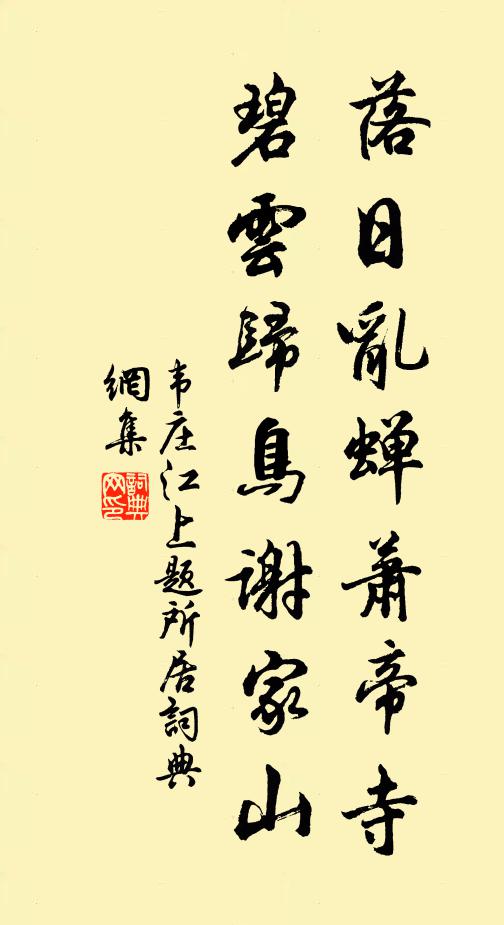 落日亂蝉蕭帝寺
碧雲歸鳥謝家山
韦庄江上题所居詞典
網集
詞典網印